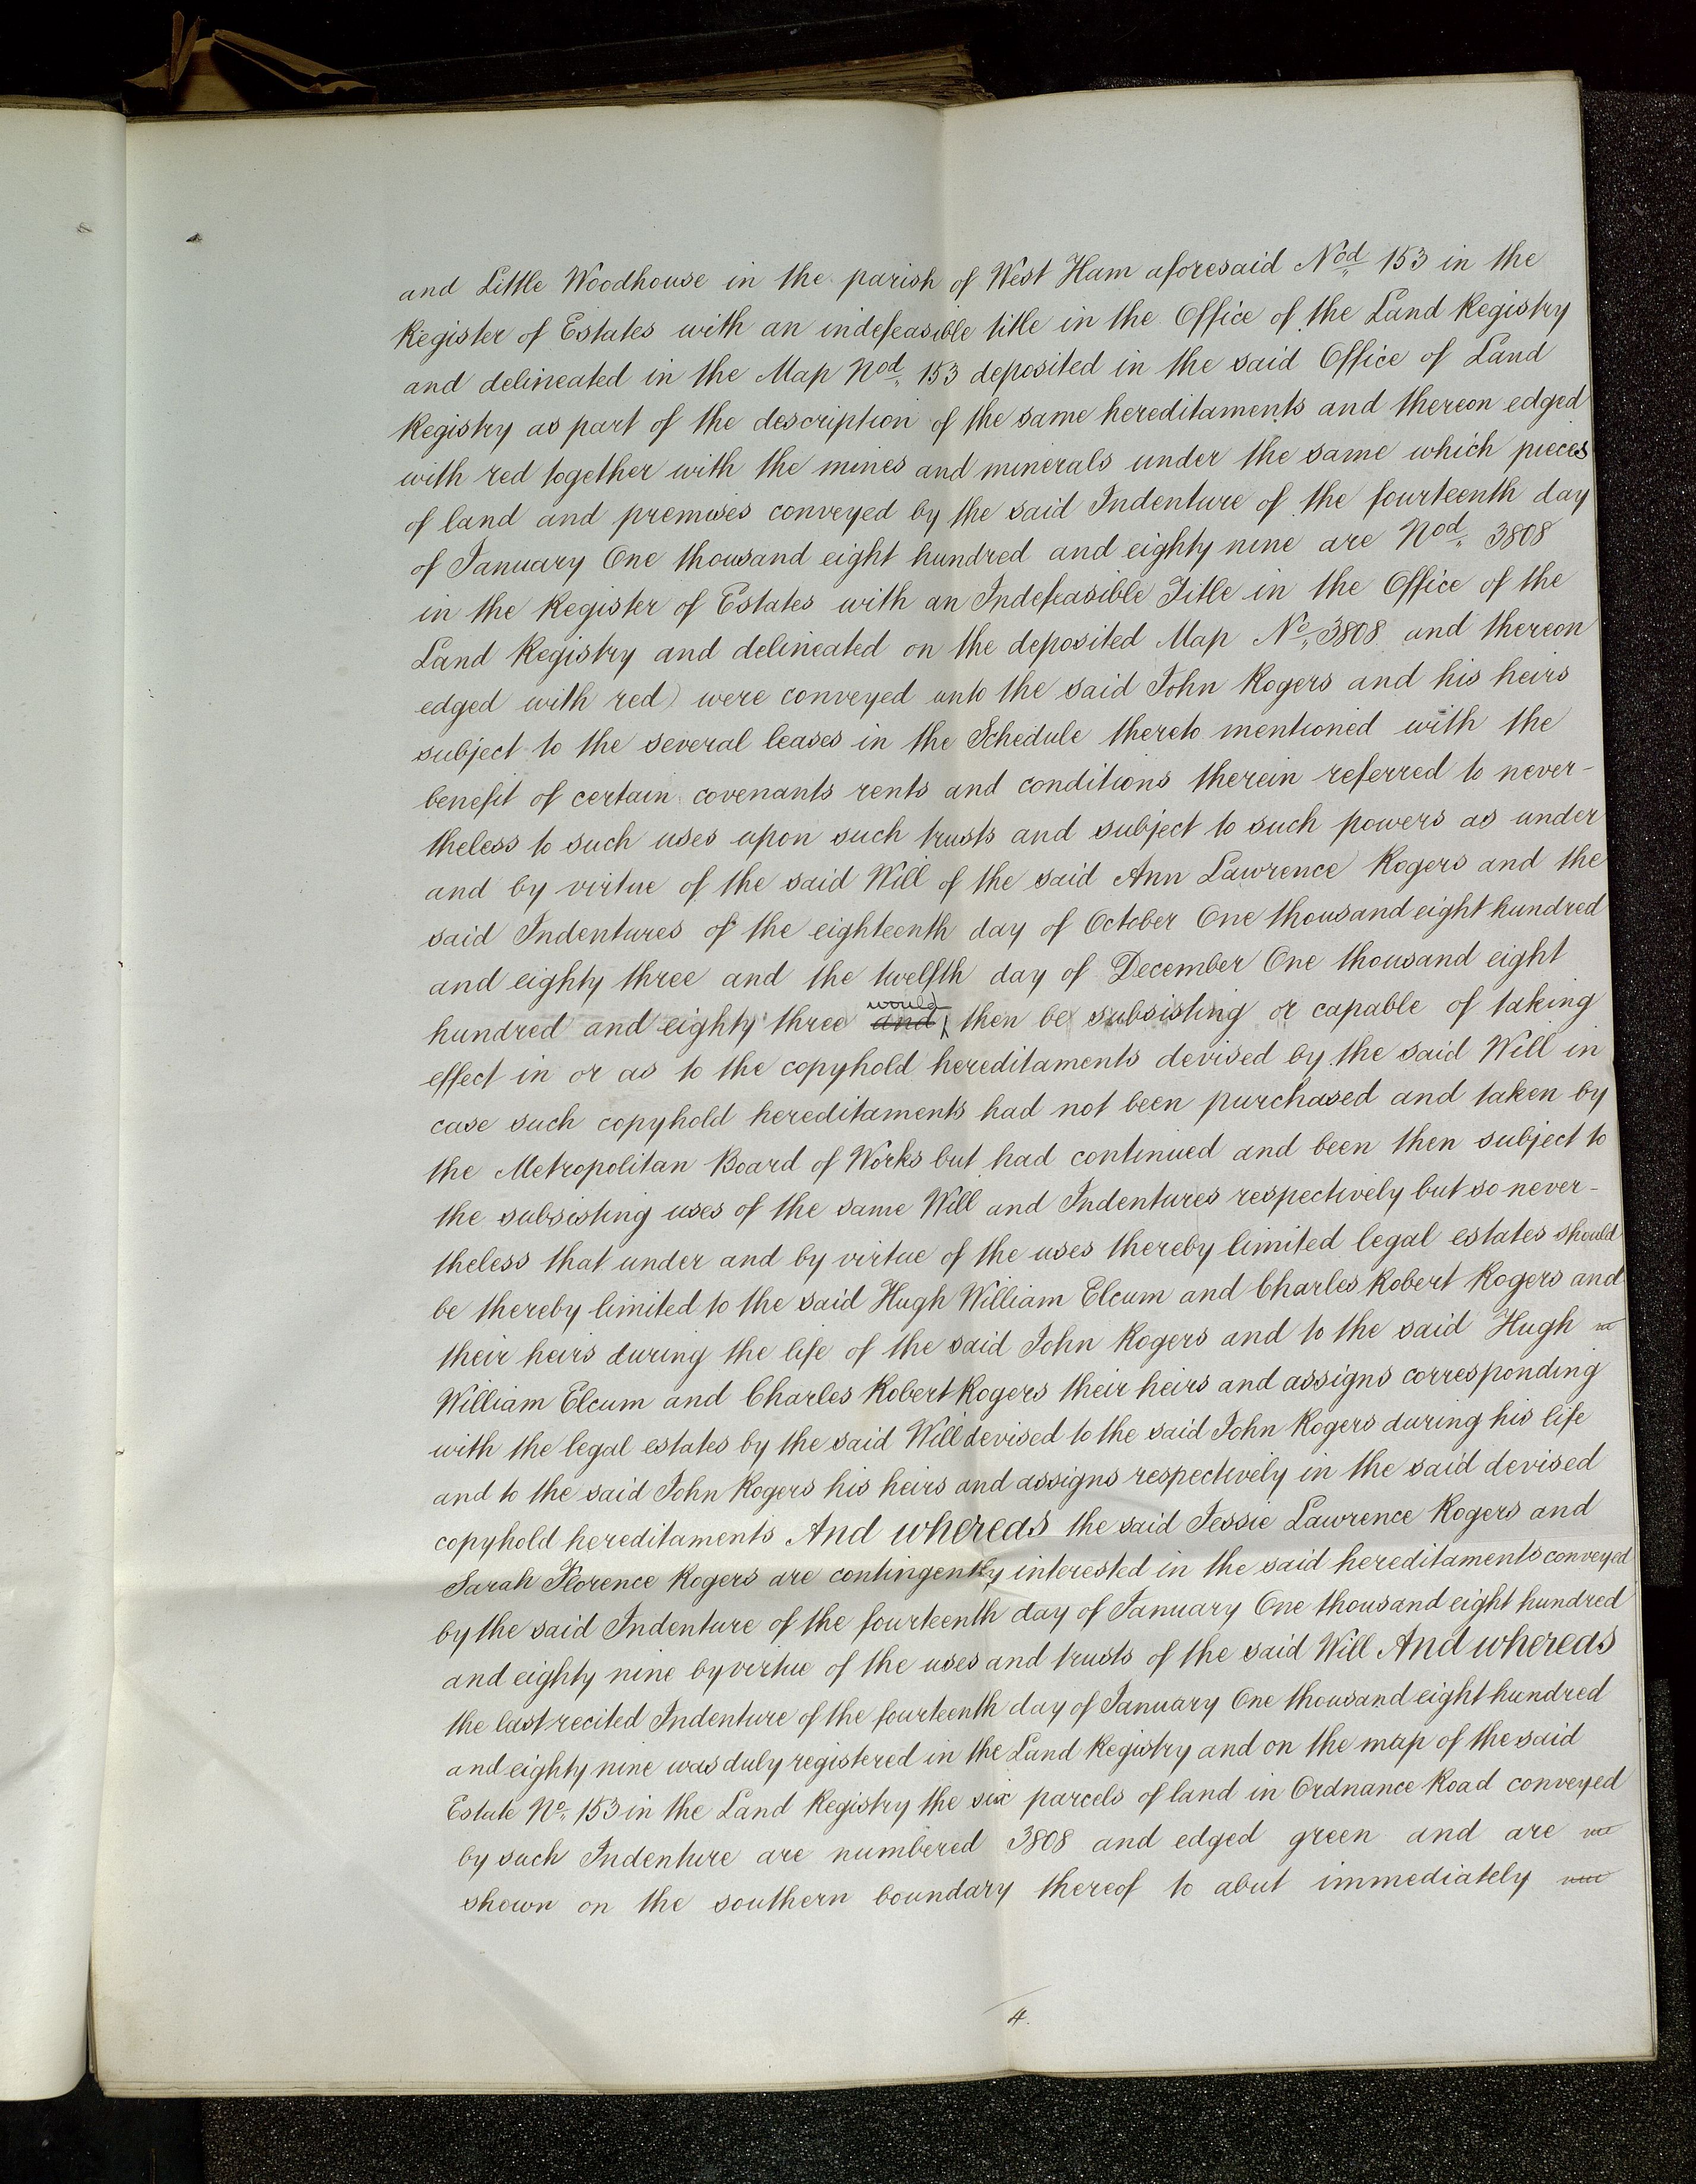 and Little Woodhouse in the parish of West Ham aforesaid Nod. 153 in the
Register of Estates with an indefeasible title in the Office of the Land Registry
and delineated in the Map Nod. 153 deposited in the said Office of Land
Registry as part of the description of the same hereditaments and thereon edged
with red together with the mines and minerals under the same which pieces
of land and premises conveyed by the said Indenture of the fourteenth day
of January One thousand eight hundred and eighty nine are Nod. 3808
in the Register of Estates with an Indefeasible Title in the Office of the
Land Registry and delineated on the deposited Map No. 3808 and thereon
edged with red) were conveyed unto the said John Rogers and his heirs
subject to the several leases in the Schedule thereto mentioned with the
benefit of certain covenants rents and conditions therein referred to never-
theless to such uses upon such trusts and subject to such powers as under
and by virtue of the said Will of the said Ann Lawrence Rogers and the
said Indentures of the eighteenth day of October One thousand eight hundred
and eighty three and the twelfth day of December One thousand eight
would
hundred and eighty three and then be subsisting or capable of taking
effect in or as to the copyhold hereditaments devised by the said Will in
case such copyhold hereditaments had not been purchased and taken by
the Metropolitan Board of Works but had continued and been then subject to
the subsisting uses of the same Will and Indentures respectively but so never-
theless that under and by virtue of the uses thereby limited legal estates should
be thereby limited to the said Hugh William Elcum and Charles Robert Rogers and
their heirs during the life of the said John Rogers and to the said Hugh
William Elcum and Charles Robert Rogers their heirs and assigns corresponding
with the legal estates by the said Will devised to the said John Rogers during his life
and to the said John Rogers his heirs and assigns respectively in the said devised
copyhold hereditaments And whereas the said Jessie Lawrence Rogers and
Sarah Florence Rogers are contingently interested in the said hereditaments conveyed
by the said Indenture of the fourteenth day of January One thousand eight hundred
and eighty nine by virtue of the uses and trusts of the said Will And whereas
the last recited Indenture of the fourteenth day of January One thousand eight hundred
and eighty nine was duly registered in the Land Registry and on the map of the said
Estate No. 153 in the Land Registry the six parcels of land in Ordnance Road conveyed
by such Indenture are numbered 3808 and edged green and are
shown on the southern boundary thereof to abut immediately
4.